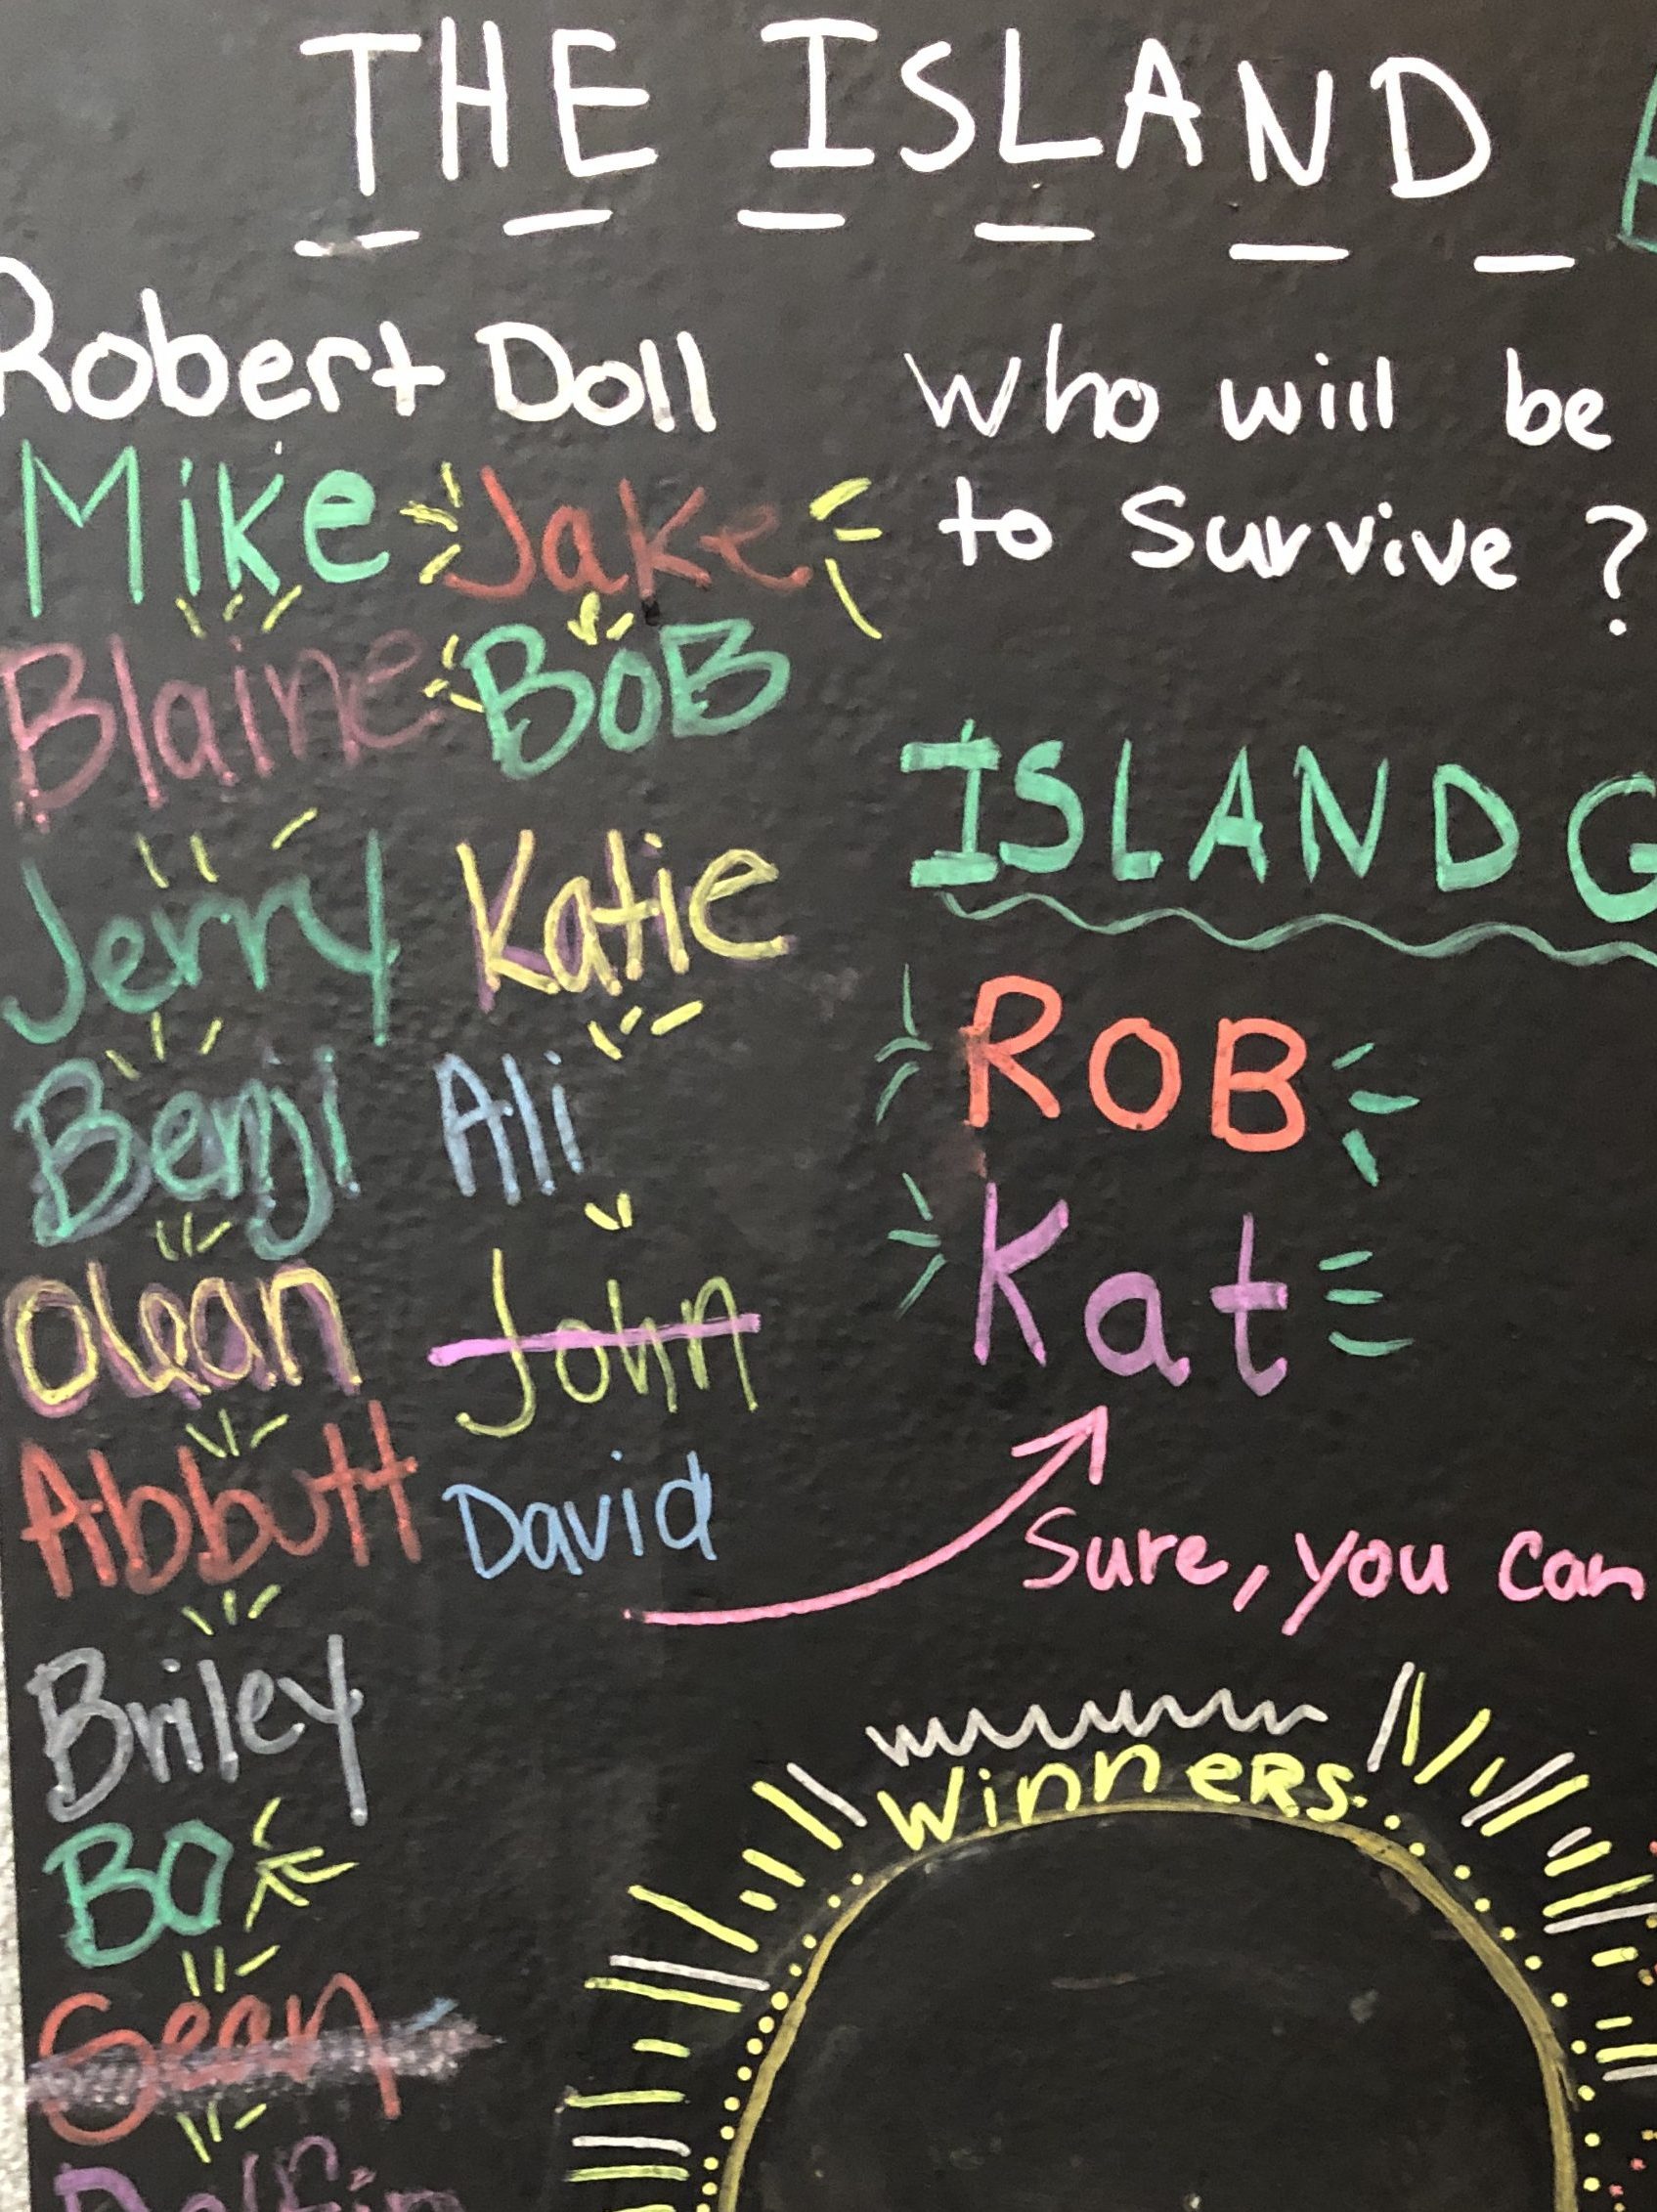 THE ISLAND
Robert Doll
Who will be
to Survive ?
Mike Jake
Blaine BOB
Jerry Katie
Benji Ali
Olean John
Abbutt David
Briley
BO
Sean
ISLAND G
ROB
Kat
Sure, you can
WinneRS